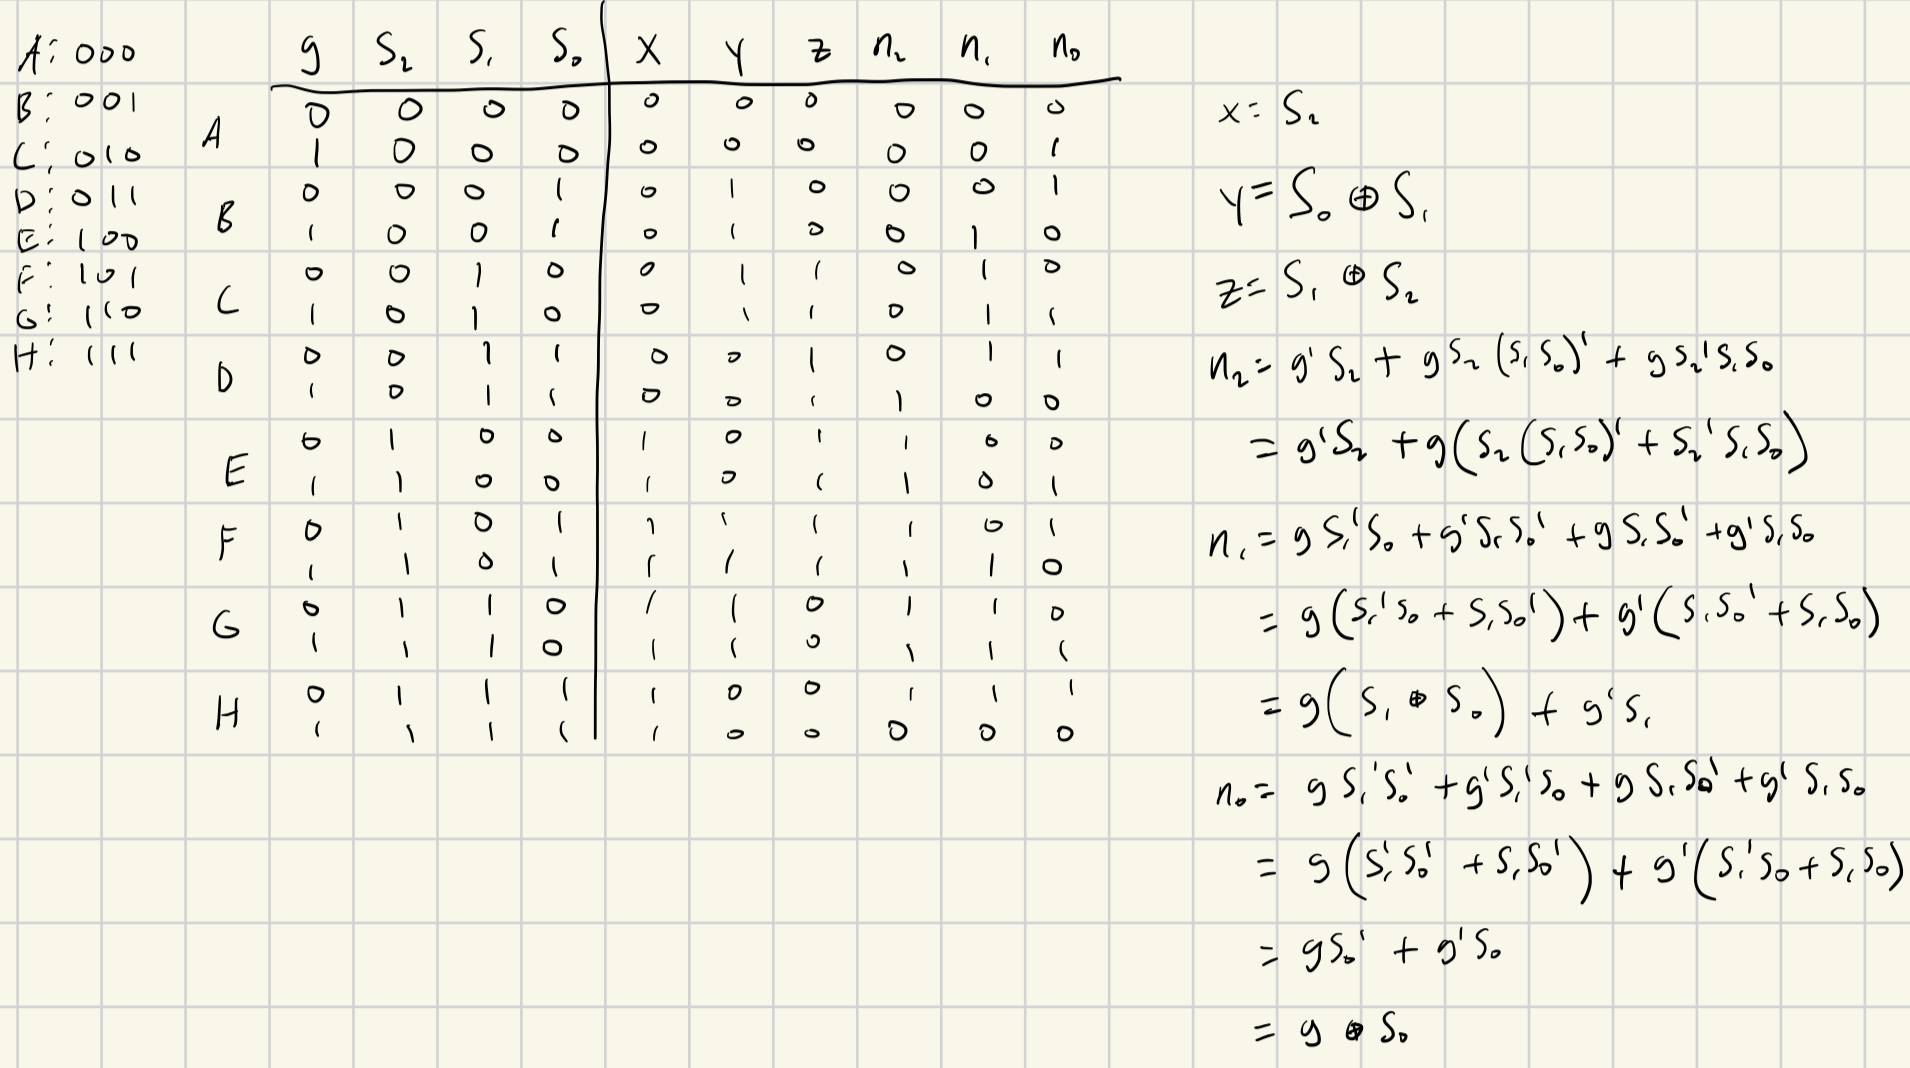 A: 000
B: 001
C: 010
D: 011
E: 100
F: 101
G: 110
H: 111
g S₂ S₁ S₀ X Y Z n₂ n₁ n₀
A
0 0 0 0 0 0 0 0 0 0
1 0 0 0 0 0 0 0 0 1
B
0 0 0 1 0 1 0 0 0 1
1 0 0 1 0 1 0 0 1 0
C
0 0 1 0 0 1 1 0 1 0
1 0 1 0 0 1 1 0 1 1
D
0 0 1 1 0 0 1 0 1 1
1 0 1 1 0 0 1 1 0 0
E
0 1 0 0 1 0 1 1 0 0
1 1 0 0 1 0 1 1 0 1
F
0 1 0 1 1 1 1 1 0 1
1 1 0 1 1 1 1 1 1 0
G
0 1 1 0 1 1 0 1 1 0
1 1 1 0 1 1 0 1 1 1
H
0 1 1 1 1 0 0 1 1 1
1 1 1 1 1 0 0 0 0 0
x = S₂
Y = S₀ ⊕ S₁
Z = S₁ ⊕ S₂
n₂ = g' S₂ + g S₂ (S₁ S₀)' + g S₂' S₁ S₀
= g' S₂ + g (S₂ (S₁ S₀)' + S₂' S₁ S₀)
n₁ = g S₁' S₀ + g' S₁ S₀' + g S₁ S₀' + g' S₁ S₀
= g (S₁' S₀ + S₁ S₀') + g' (S₁ S₀' + S₁ S₀)
= g (S₁ ⊕ S₀) + g' S₁
n₀ = g S₁' S₀' + g' S₁' S₀ + g S₁ S₀' + g' S₁ S₀
= g (S₁' S₀' + S₁ S₀') + g' (S₁' S₀ + S₁ S₀)
= g S₀' + g' S₀
= g ⊕ S₀